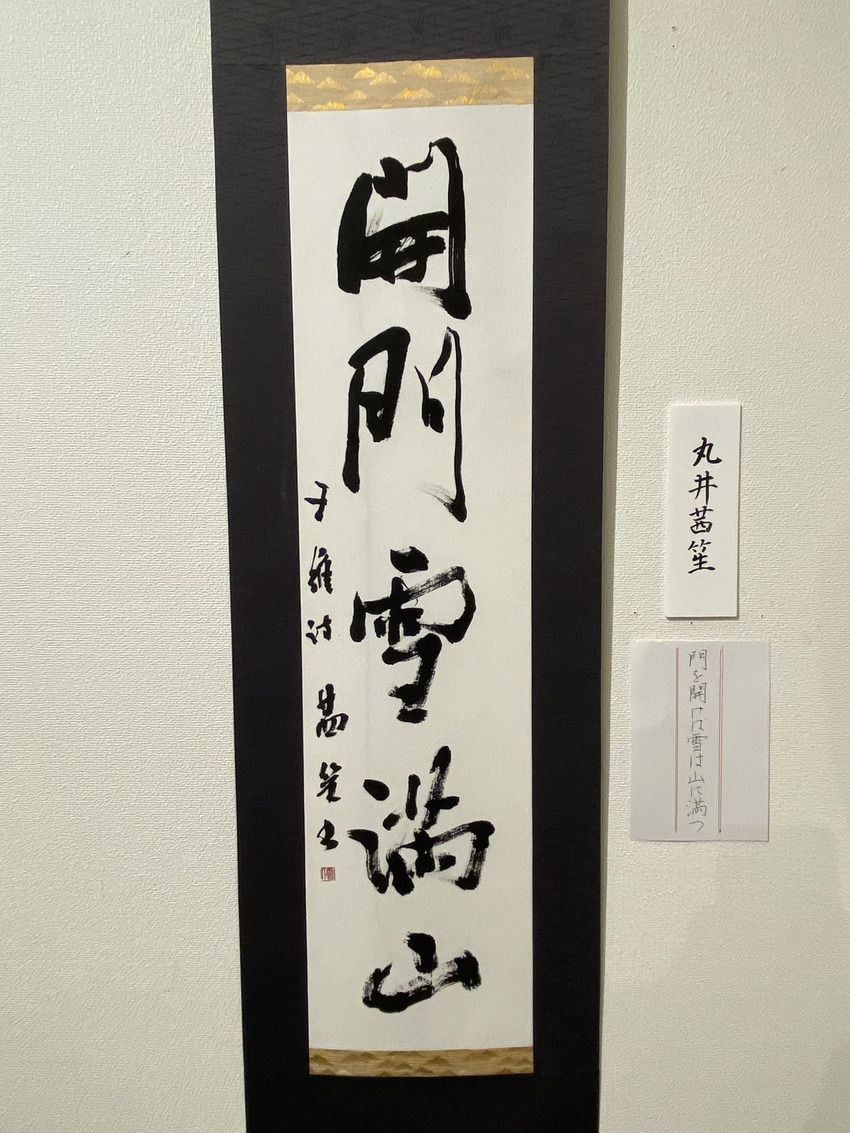 開門雪満山
王維詩 茜笙書
丸井茜笙
門を開けば雪は山に満つ